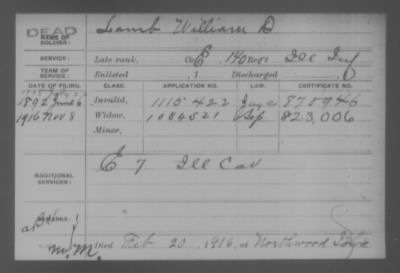 DEAD
NAME OF SOLDIER: Lamb William D
SERVICE: Late rank, Co. E, 140 Reg't Ill Inf
TERM OF SERVICE: Enlisted , 1 Discharged
DATE OF FILING. CLASS. APPLICATION NO. LAW. CERTIFICATE NO.
1892 June 6 Invalid, 1115422
1916 Nov 8 Widow, 1084521 Sep 823,006
Minor,
ADDITIONAL SERVICES: E 7 Ill Cav
REMARKS:
M.M.
Died Feb 20, 1916, at Northwood Iowa